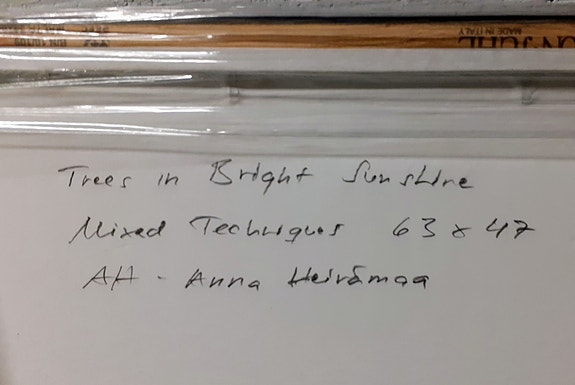 MADE IN ITALY
Trees in Bright Sunshine
Mixed Techniques 63 x 47
AH - Anna Heirämaa